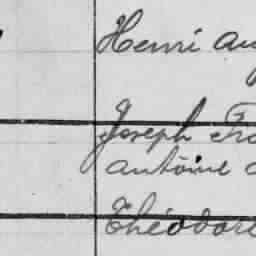 Henri au
Joseph Fra
antoine
Théodore